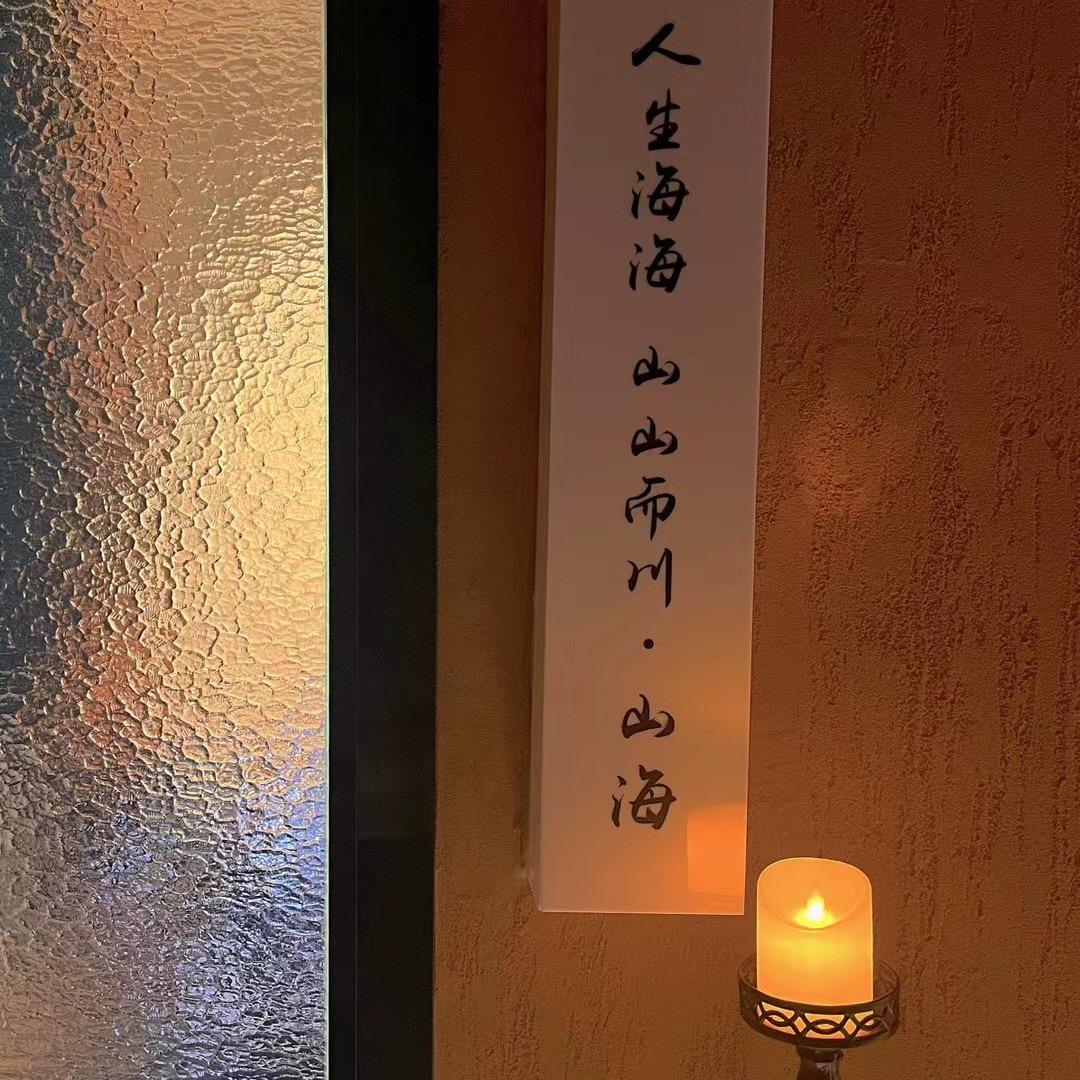 人生海海 山山而川·山海